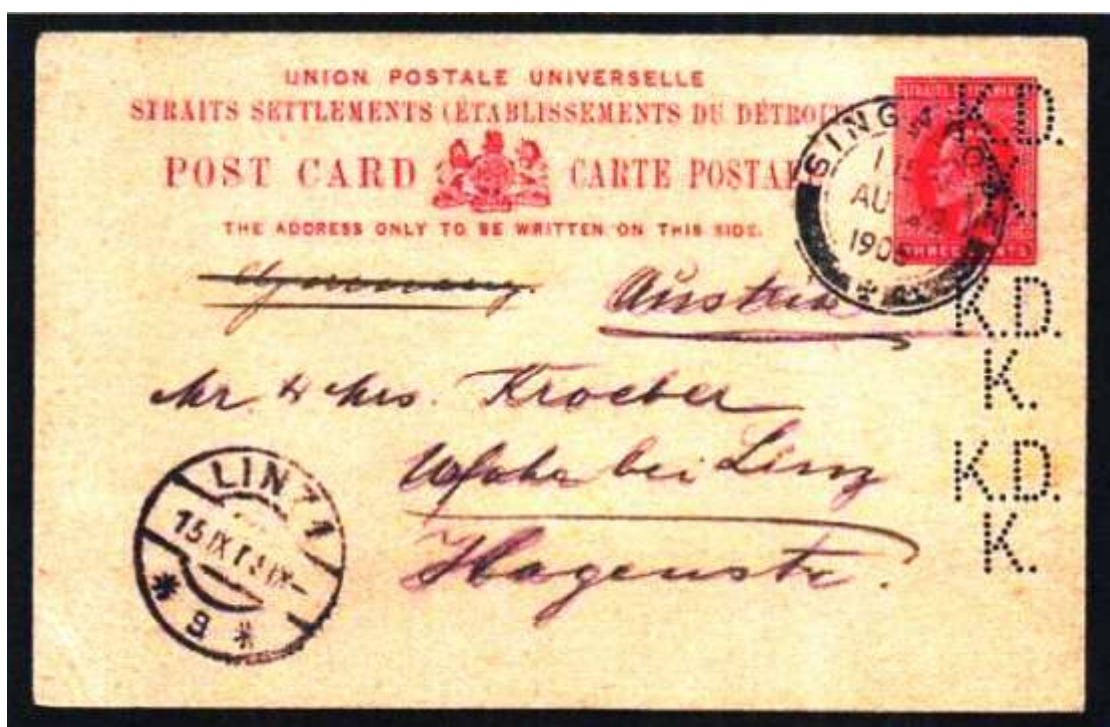 UNION POSTALE UNIVERSELLE
STRAITS SETTLEMENTS (ÉTABLISSEMENTS DU DÉTROIT
POST CARD CARTE POSTAL
THE ADDRESS ONLY TO BE WRITTEN ON THIS SIDE.
SINGAPORE
AU
K.D.
K.
Germany.
Austria
K.D.
K.
Mr & Mrs. Kroeber
Urfahr bei Linz
Hagenstr.
K.D.
K.
LINZ 1
15 IX